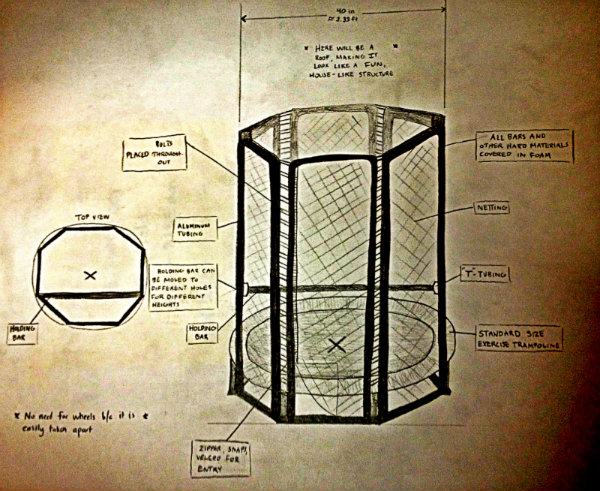 40 in
≈ 3.33 ft
* HERE WILL BE A *
ROOF, MAKING IT
LOOK LIKE A FUN,
HOUSE-LIKE STRUCTURE
BOLTS
PLACED THROUGH-
OUT
ALL BARS AND
OTHER HARD MATERIALS
COVERED IN FOAM
ALUMINUM
TUBING
NETTING
TOP VIEW
HOLDING BAR CAN
BE MOVED TO
DIFFERENT HOLES
FOR DIFFERENT
HEIGHTS
"T"-TUBING
HOLDING
BAR
HOLDING
BAR
STANDARD SIZE
EXERCISE TRAMPOLINE
* No need for wheels b/c it is *
easily taken apart
ZIPPER, SNAPS,
VELCRO FOR
ENTRY